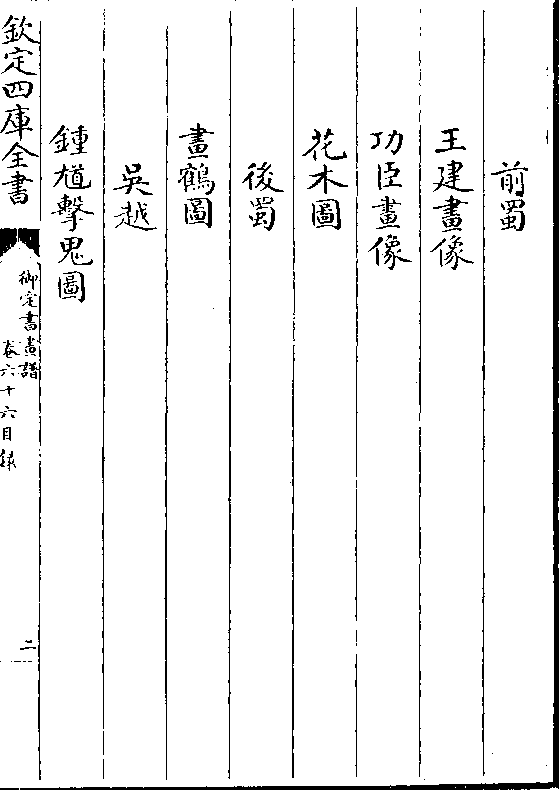 前蜀
王建畫像
功臣畫像
花木圖
後蜀
畫鶴圖
吳越
鍾馗擊鬼圖
欽定四庫全書
御定書畫譜
卷六十六目錄
二